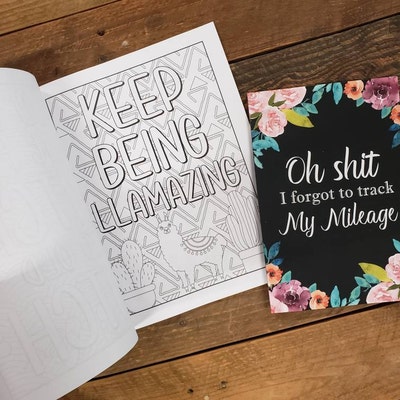 KEEP
BEING
LLAMAZING
Oh shit
I forgot to track
My Mileage